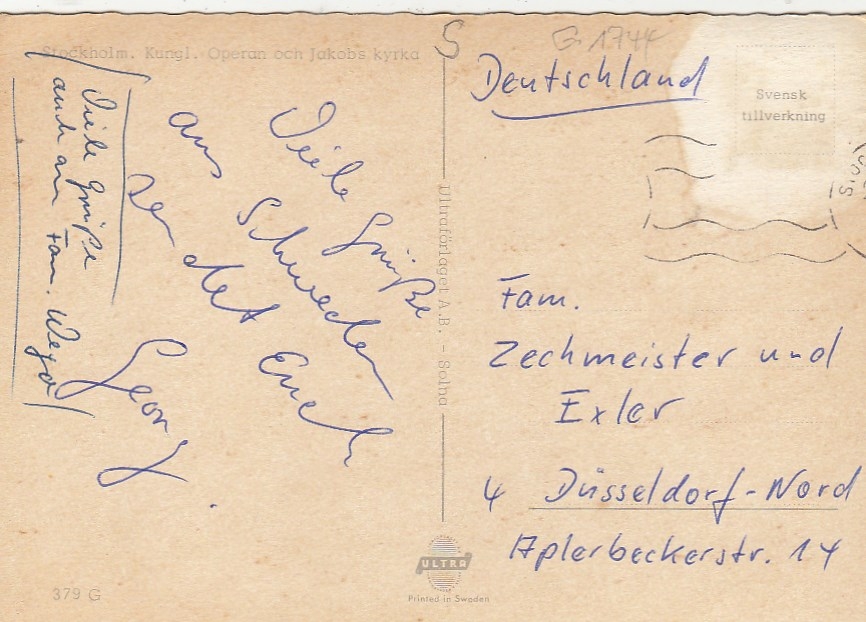 Stockholm. Kungl. Operan och Jakobs kyrka
Viele Grüße
aus Schweden
sendet Euch
Georg.
Viele Grüße
auch an Fam.
S
G 1744
Deutschland
Svensk
tillverkning
Ultraförlaget A.B. - Solna
Fam.
Zechmeister und
Exler
4 Düsseldorf-Nord
Aplerbeckerstr. 14
379 G
ULTRA
Printed in Sweden